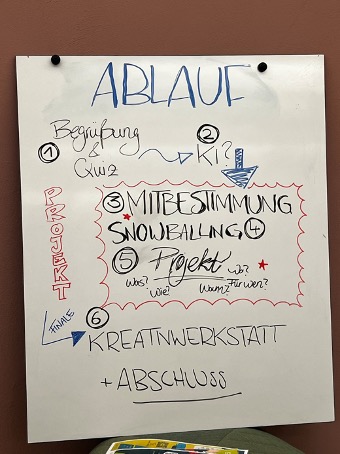 ABLAUF
① Begrüßung
& Quiz
② KI?
PROJEKT
③ MITBESTIMMUNG
SNOWBALLING ④
⑤ Projekt
Was? Wie? Wann? Wo? Für wen?
FINALE
⑥
KREATIVWERKSTATT
+ ABSCHLUSS